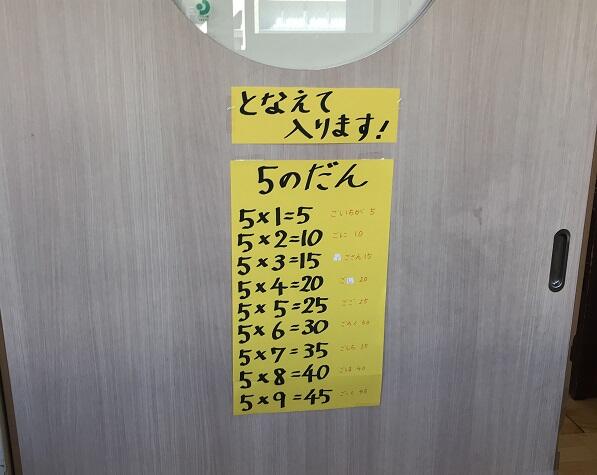 となえて
入ります!
5のだん
5×1=5 ごいちが 5
5×2=10 ごに 10
5×3=15 ごさん 15
5×4=20 20
5×5=25 ごご 25
5×6=30 ごろく 30
5×7=35 ごしち 35
5×8=40 ごは 40
5×9=45 45